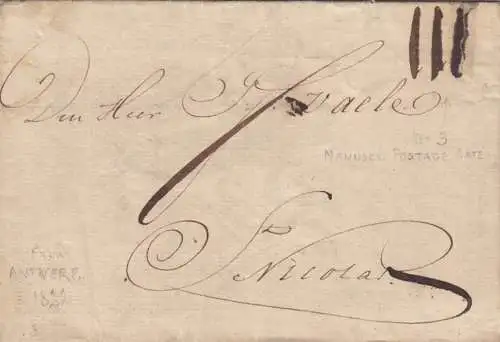 III
Den Heer J. F. Vaele
3
MANUSCR. POSTAGE RATE
St Nicolas
FROM
ANTWERP.
18